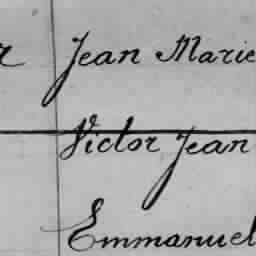 Jean Marie
Victor Jean
Emmanuel